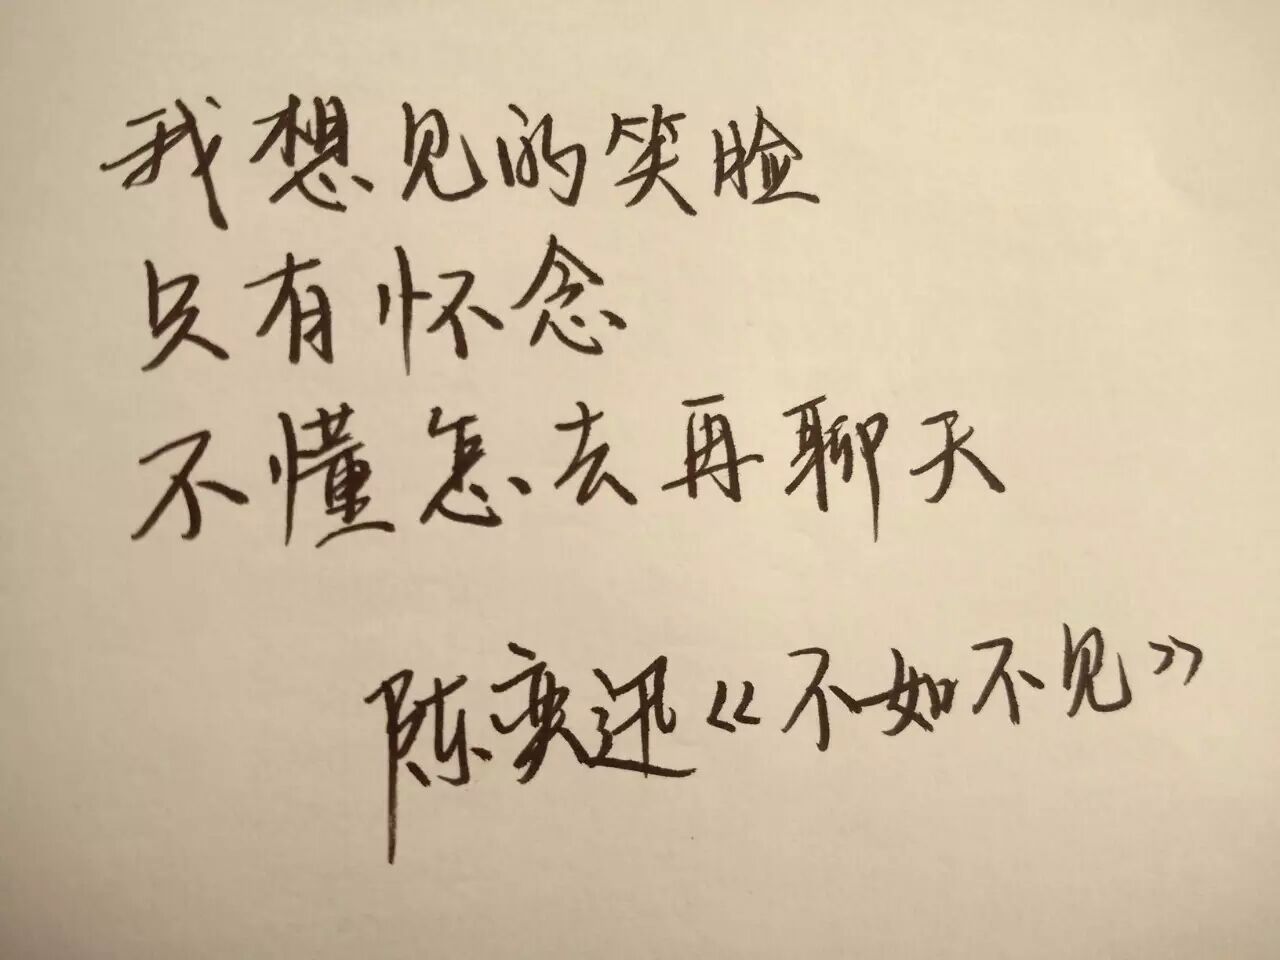 我想见的笑脸
只有怀念
不懂怎去再聊天
陈奕迅《不如不见》